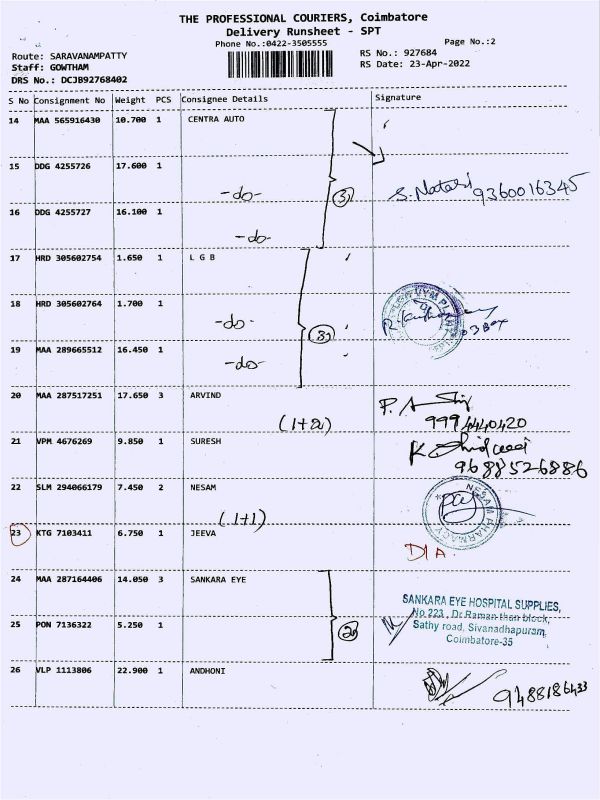 THE PROFESSIONAL COURIERS, Coimbatore
Delivery Runsheet - SPT
Phone No.:0422-3505555
Page No.:2
Route: SARAVANAMPATTY
RS No.: 927684
Staff: GOWTHAM
RS Date: 23-Apr-2022
DRS No.: DCJB92768402
S No Consignment No Weight PCS Consignee Details Signature
14 MAA 565916430 10.700 1 CENTRA AUTO
15 DDG 4255726 17.600 1
-do- 3 S. Natasi 9360016345
16 DDG 4255727 16.100 1
-do-
17 HRD 305602754 1.650 1 L G B
18 HRD 305602764 1.700 1
-do- 3
19 MAA 289665512 16.450 1
-do-
20 MAA 287517251 17.650 3 ARVIND
(1+2) 9994440420
21 VPM 4676269 9.850 1 SURESH
9688526886
22 SLM 294066179 7.450 2 NESAM
NESAM PHARMACY
(1+1)
23 KTG 7103411 6.750 1 JEEVA
D/A.
24 MAA 287164406 14.050 3 SANKARA EYE
SANKARA EYE HOSPITAL SUPPLIES,
No.223, Dr.Raman than block,
25 PON 7136322 5.250 1 2
Sathy road, Sivanadhapuram,
Coimbatore-35
26 VLP 1113806 22.900 1 ANDHONI
9488186433